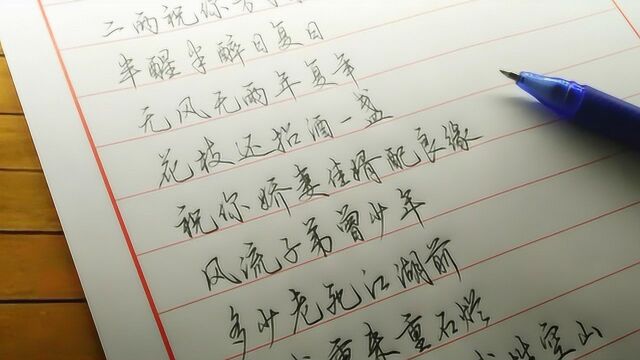 二两祝你
半醒半醉日复日
无风无雨年复年
花枝还招酒一盏
祝你娇妻佳婿配良缘
风流子弟曾少年
多少老死江湖前
重来重石烂
空山